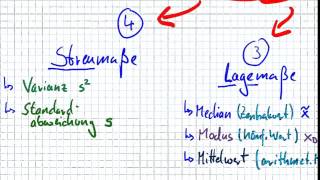 4
Streumaße
↳ Varianz s²
↳ Standard-
abweichung s
3
Lagemaße
↳ Median (Zentralwert) x̃
↳ Modus (häuf. Wert) x_D
↳ Mittelwert (arithmet.